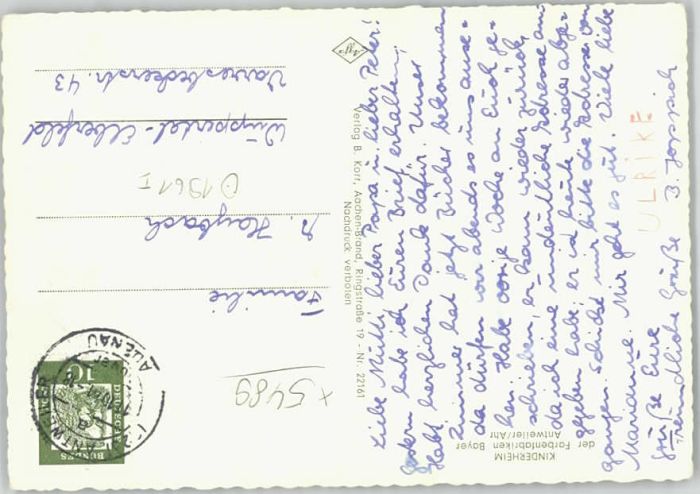 Liebe Mutti, lieber Papa u. lieber Peter!
Gestern habe ich Euren Brief erhalten,
Habt herzlichen Dank dafür. Unser
Zimmer hat jetzt Bücher bekommen
da dürfen wir abends es uns ansehen.
Habe vorige Woche an Euch ge-
schrieben, er kam wieder zurück,
da ich eine undeutliche Adresse an-
gegeben habe, er ist heute wieder abge-
gangen. Schickt mir bitte die Adresse von
Marianne. Mir geht es gut. Viele liebe
Grüße Eure
ULRIKE
Freundliche Grüße B.
KINDERHEIM
der Farbenfabriken Bayer
Antweiler/Ahr
Verlag B. Korr, Aachen-Brand, Ringstraße 19 - Nr. 22161
Nachdruck verboten
agfa
DEUTSCHE
BUNDES
10
ADENAU
ANTWEILER
Familie
Haybach
Wuppertal-Elberfeld
Varresbeckerstr. 43
D 1961 I
x 5489